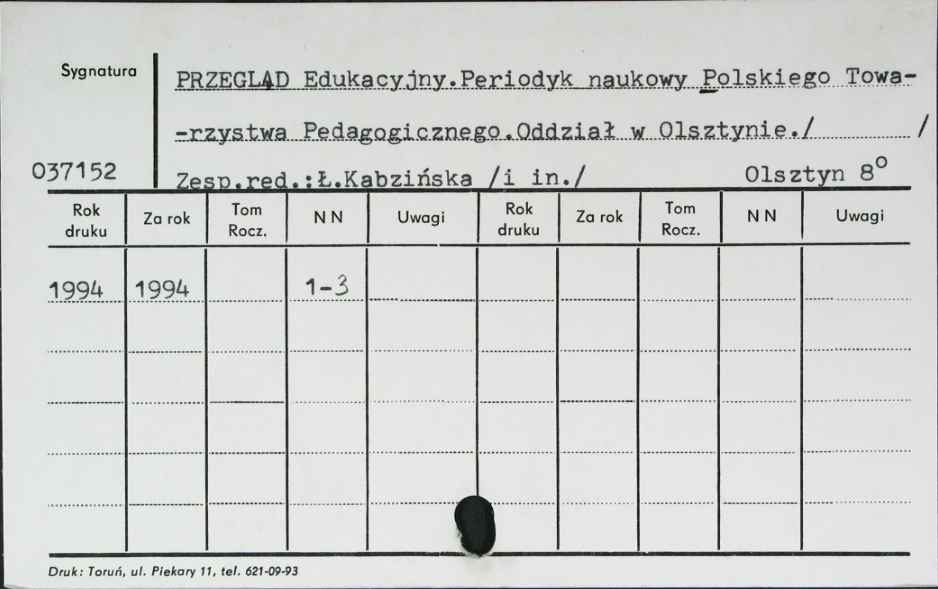 Sygnatura
PRZEGLĄD Edukacyjny.Periodyk naukowy Polskiego Towa-
-rzystwa Pedagogicznego.Oddział w Olsztynie./ /
037152
Zesp.red.:Ł.Kabzińska /i in./ Olsztyn 8°
Rok druku Za rok Tom Rocz. NN Uwagi Rok druku Za rok Tom Rocz. NN Uwagi
1994 1994 1-3
Druk: Toruń, ul. Piekary 11, tel. 621-09-93